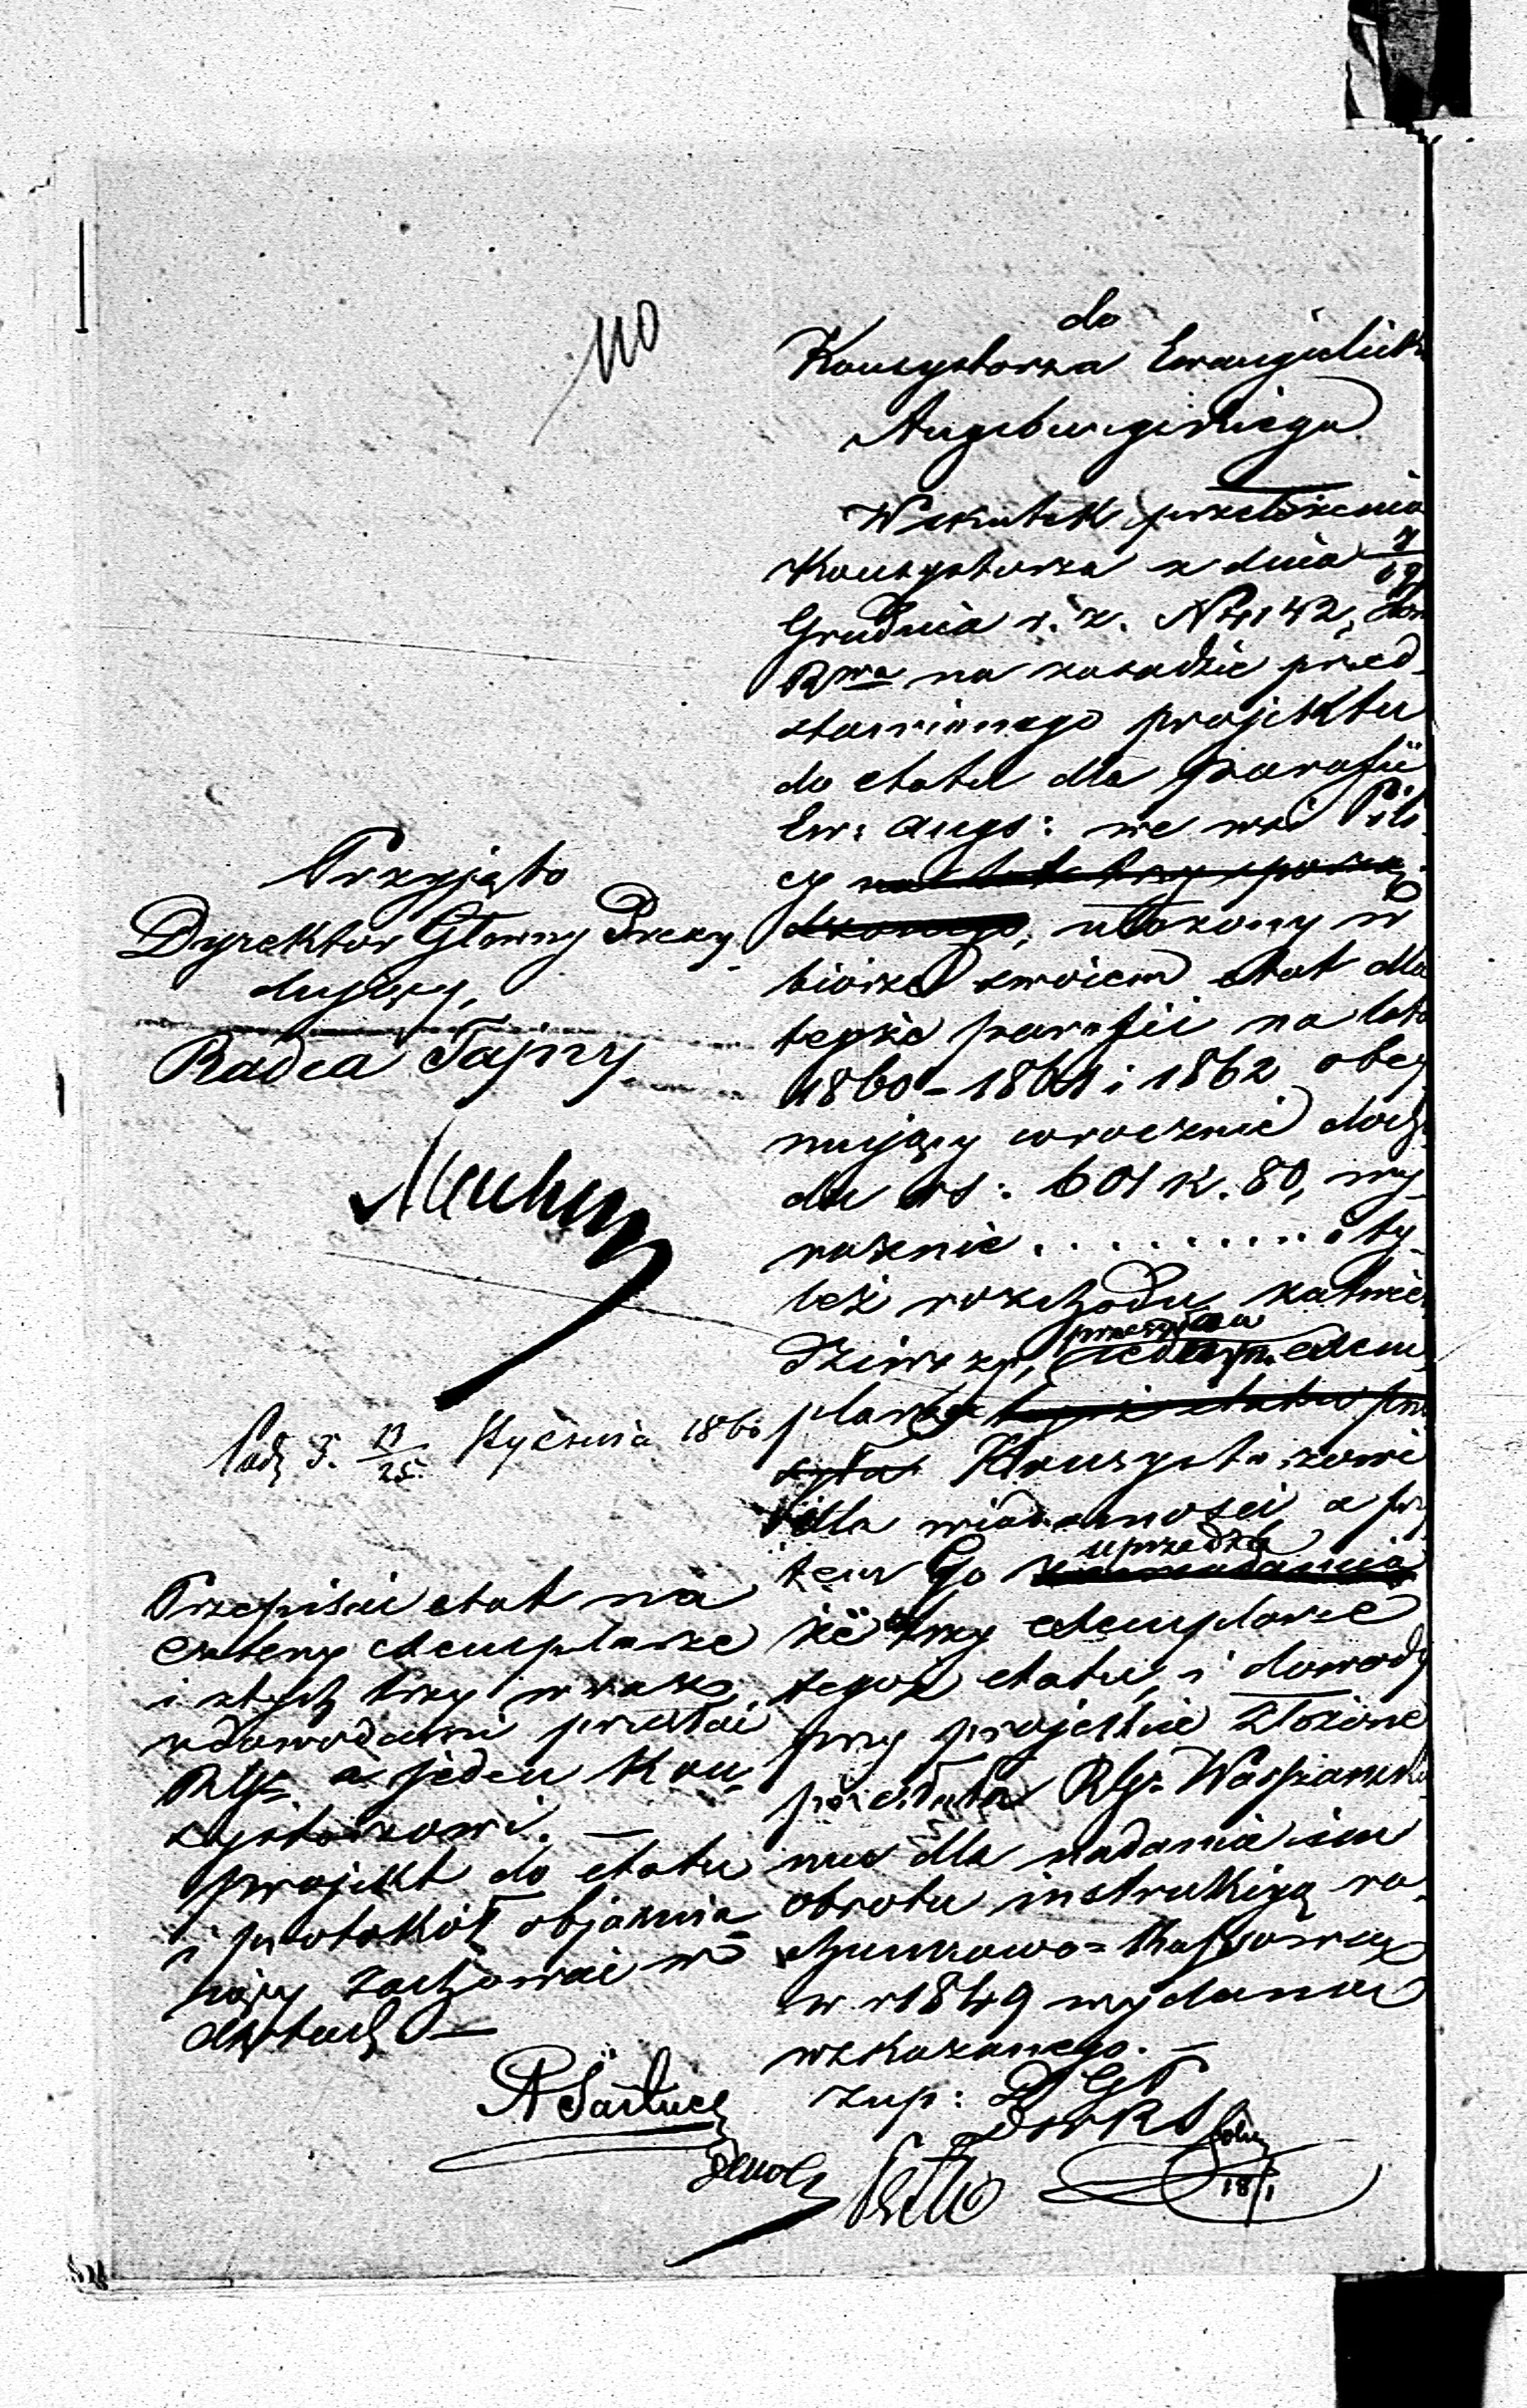 110
do
Konsystorza Ewangielick
Augsburgskiego
W skutek przełożenia
Konsystorza z dnia 7/19
Grudnia r. z. N 4142,
Rwa na zasadzie przed-
stawionego projektu
do etatu dla parafii
Ew: Augs: we wsi Pili-
cy
ułożony w
biórze swoiem etat dla
tejże parafii na lata
1860 - 1861 i 1862 obej-
mujący w rocznie docho
du rs: 601 k. 80, wy-
raźnie . . . . . . . . . . i ty-
leż rozchodu zatwier
dziwszy, przesyła
jeden exem
plarz Konsystorzowi
dla wiadomości, a przy
tem Go uprzedza
że trzy exemplarze
tegoż etatu, i dowody
przy projekcie złożone
przesłała RGo Warszawsk
mu dla nadania im
obrotu instrukcyą ra-
chunkowo=kassową
w r 1849 wydaną
wskazanego. —
zup: D G P
D W R S
18/1
Przyjęto
Dyrektor Główny Prezy-
dujący,
Radca Tajny
Muchan
Podp. d. 13/25 Stycznia 1860
Przepisać etat na
cztery exemplarze
i z tych trzy wraz
z dowodami przesłać
RGo a jeden Kon-
systorzowi. —
projekt do etatu
i protokół objaśnia-
jący zachować w
aktach —